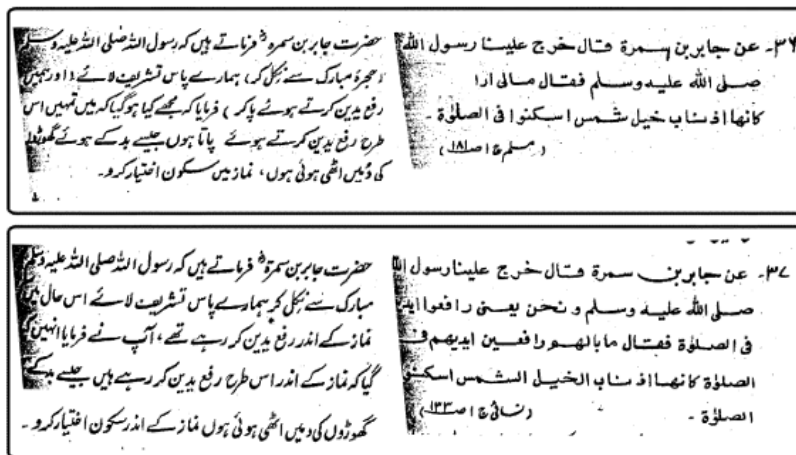 ۳۶۔ عن جابر بن سمرة قال خرج علينا رسول الله
صلى الله عليه وسلم فقال مالى ارا
كانها اذناب خيل شمس اسكنوا فى الصلوٰة ۔
(مسلم ج ۱ صـ ۱۸۱)
حضرت جابر بن سمرہؓ فرماتے ہیں کہ رسول اللہ صلی اللہ علیہ وسلم
(حجرۂ مبارک سے نکل کر) ہمارے پاس تشریف لائے (اور ہمیں
رفع یدین کرتے ہوئے پاکر) فرمایا کہ مجھے کیا ہو گیا کہ میں تمہیں اس
طرح رفع یدین کرتے ہوئے پاتا ہوں جیسے بدکے ہوئے گھوڑوں
کی دُمیں اٹھی ہوئی ہوں، نماز میں سکون اختیار کرو۔
۳۷۔ عن جابر بن سمرة قال خرج علينا رسول الله
صلى الله عليه وسلم و نحن يعنى رافعوا ايد
فى الصلوٰة فقال ما بالهم رافعين ايديهم ف
الصلوٰة كانها اذناب الخيل الشمس اسكنو
الصلوٰة ۔ (نسائی ج ۱ صـ ۱۳۳)
حضرت جابر بن سمرہؓ فرماتے ہیں کہ رسول اللہ صلی اللہ علیہ وسلم
مبارک سے نکل کر ہمارے پاس تشریف لائے اس حال میں
نماز کے اندر رفع یدین کر رہے تھے، آپ نے فرمایا انہیں ک
گیا کہ نماز کے اندر اس طرح رفع یدین کر رہے ہیں جیسے بدکے
گھوڑوں کی دمیں اٹھی ہوئی ہوں نماز کے اندر سکون اختیار کرو۔